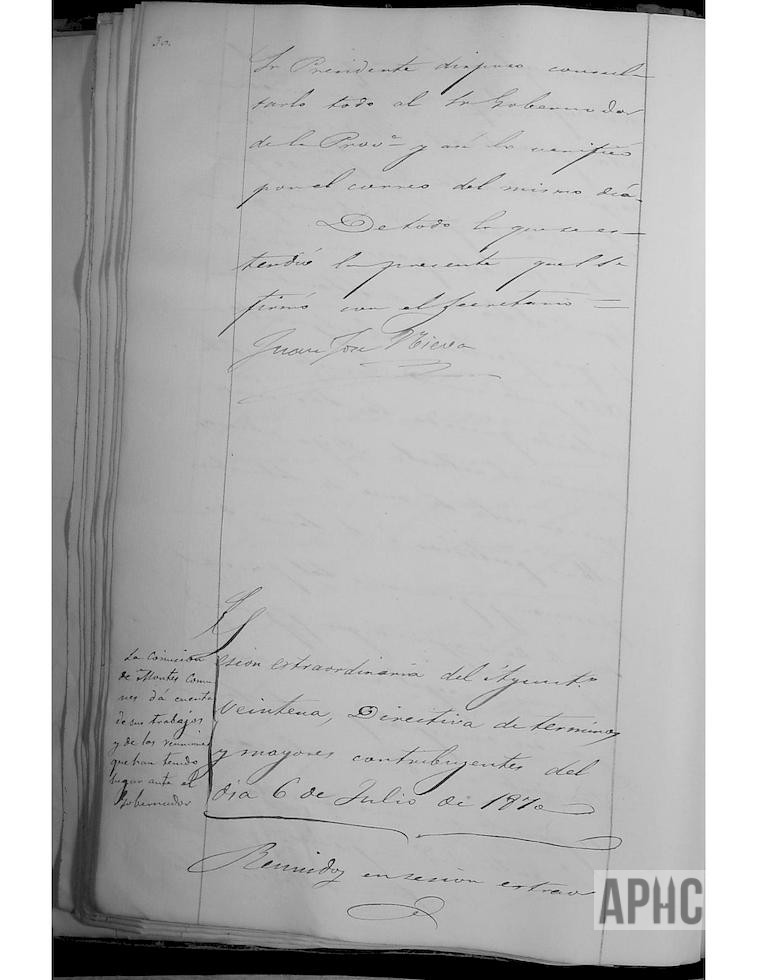 30.
Sr Presidente dispuso consul-
tarlo todo al Sr Gobernador
de la Prov.ª y así lo verificó
por el correo del mismo dia.
De todo lo que se es-
tendió la presente que S.
firmó con el Secretario =
Juan José Nieva
La Comision
de Montes Comu
nes dá cuenta
de sus trabajos
y de las reuniones
que han tenido
lugar ante el
Gobernador
Sesion extraordinaria del Ayunt.º
Veintena, Directiva de terminos
y mayores contribuyentes del
dia 6 de Julio de 1870
Reunidos en sesion extraor
APHC